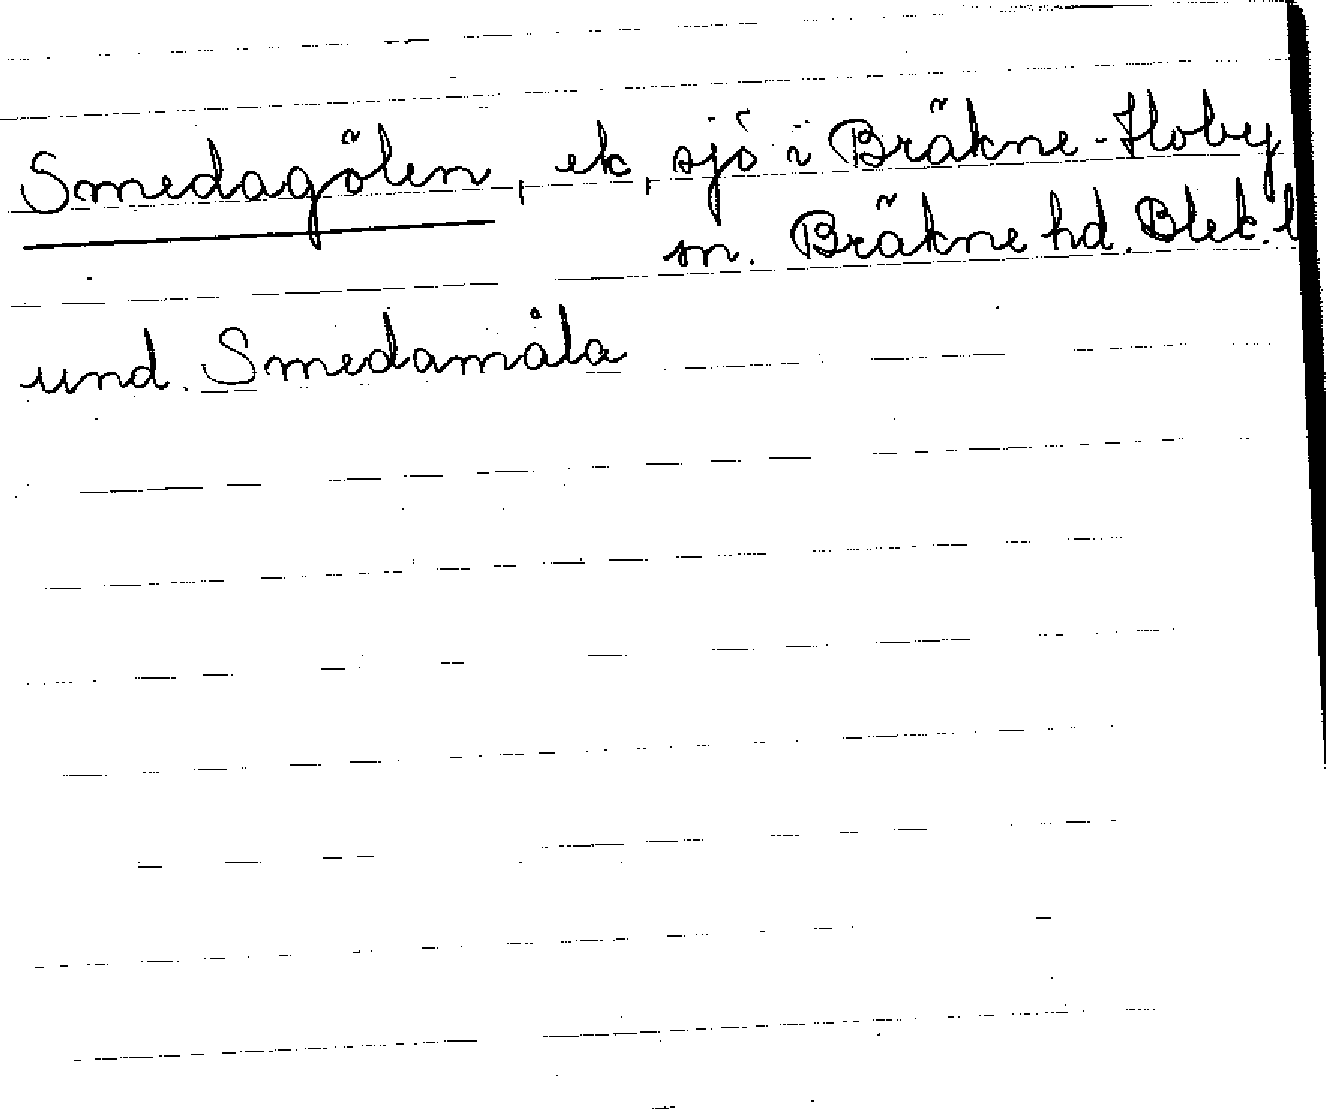 Smedagölen, ek, sjö i Bräkne-Hoby
sn. Bräkne hd. Blek. l
und. Smedamåla